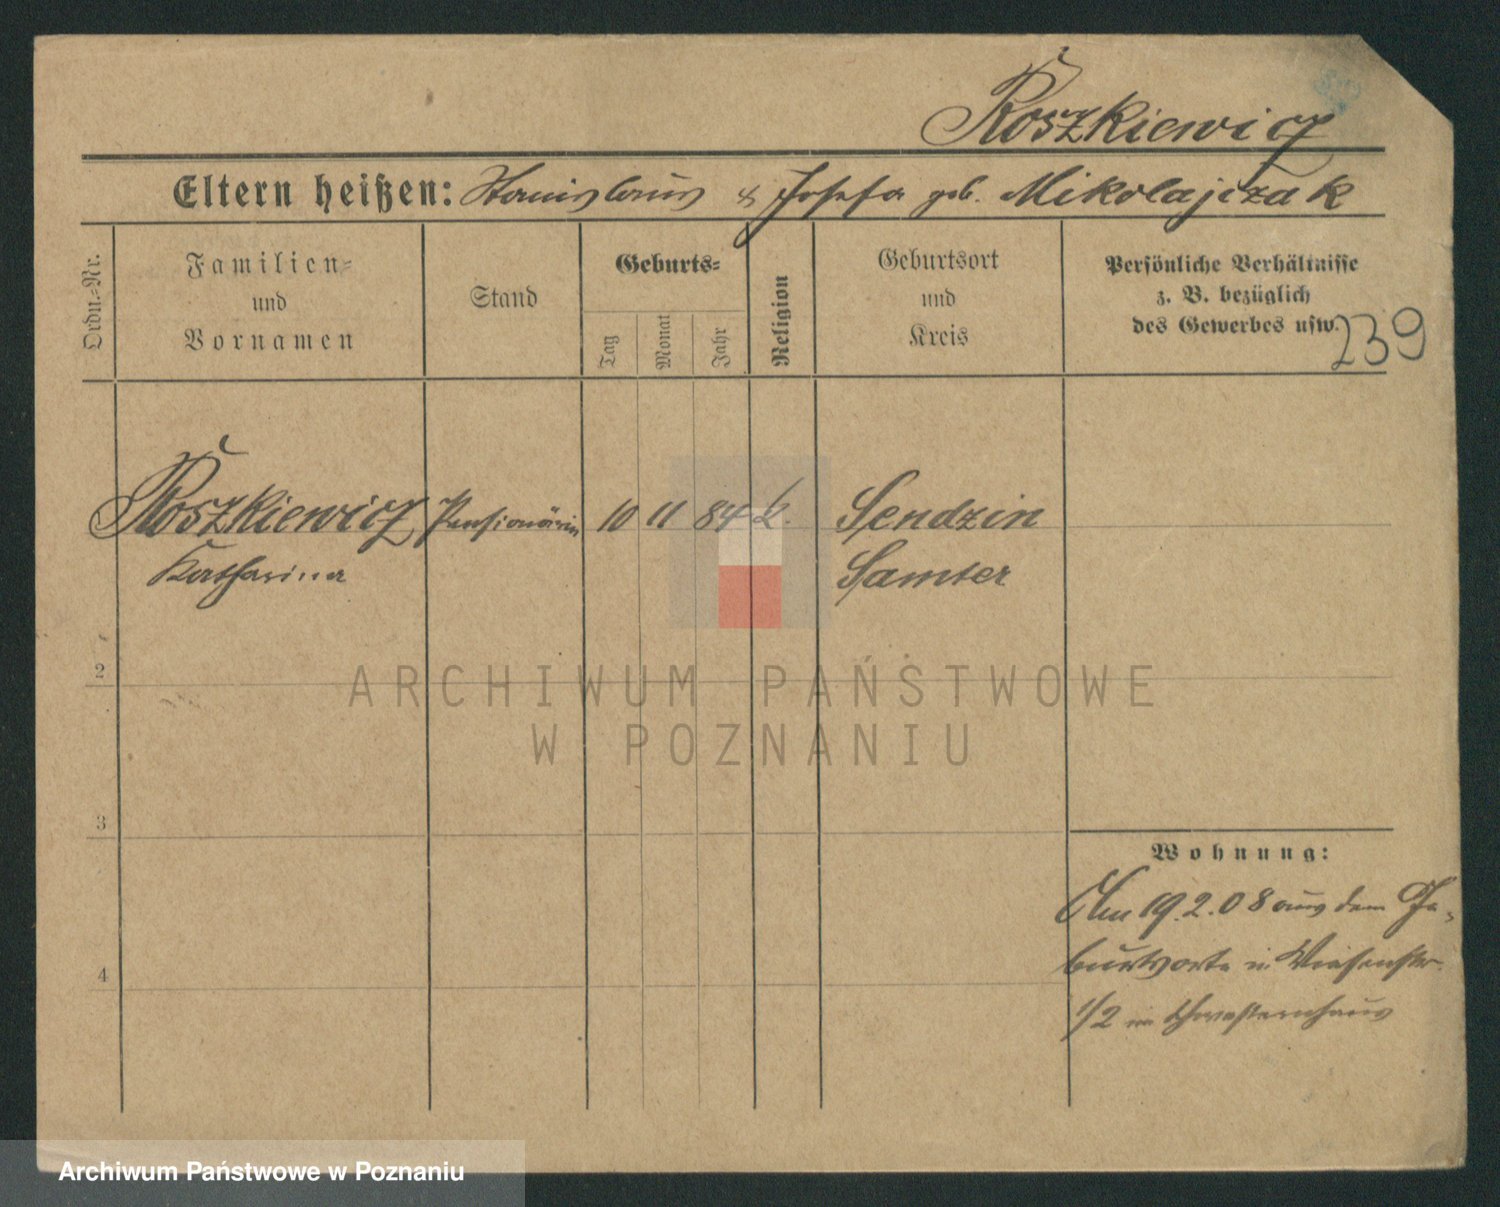 Roszkiewicz
Eltern heißen: Stanislaus & Josefa geb. Mikolajczak
Ordn.-Nr.
Familien-
und
Vornamen
Stand
Geburts-
Tag
Monat
Jahr
Religion
Geburtsort
und
Kreis
Persönliche Verhältnisse
z. B. bezüglich
des Gewerbes usw.
239
Roszkiewicz Pensionärin 10 11 84 k. Sendzin
Katharina Samter
2
ARCHIWUM PAŃSTWOWE
W POZNANIU
3
Wohnung:
Am 19.2.08 aus dem Ge-
burtsorte in Wiesenstr.
1/2 im Schwesternhaus
4
Archiwum Państwowe w Poznaniu